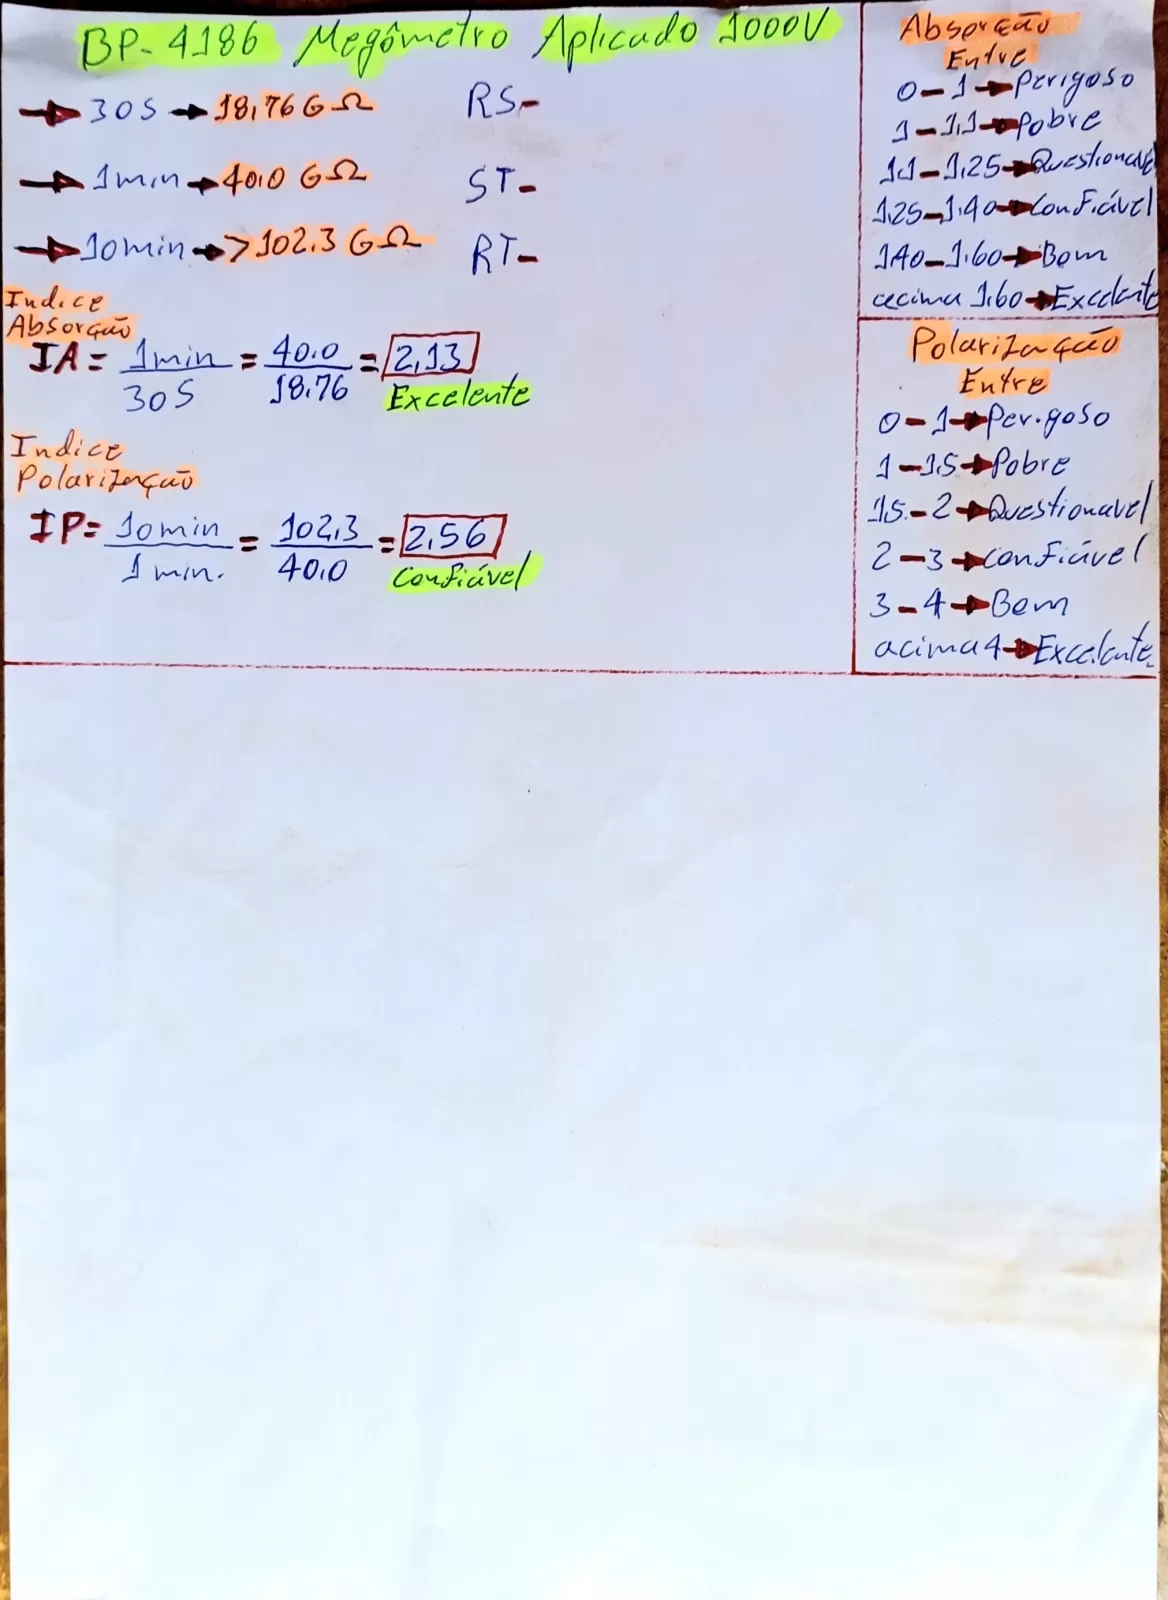 BP-4186 Megômetro Aplicado 1000V
→ 30S → 18,76 GΩ
RS-
→ 1min → 40,0 GΩ
ST-
→ 10min → >102,3 GΩ
RT-
Indice
Absorção
IA = 1min / 30S = 40,0 / 18,76 = 2,13
Excelente
Indice
Polarização
IP = 10min / 1min. = 102,3 / 40,0 = 2,56
Confiável
Absorção
Entre
0-1→Perigoso
1-1,1→Pobre
1,1-1,25→Questionavel
1,25-1,40→Confiável
1,40-1,60→Bom
acima 1,60→Excelente
Polarização
Entre
0-1→Perigoso
1-1,5→Pobre
1,5-2→Questionavel
2-3→Confiável
3-4→Bom
acima 4→Excelente